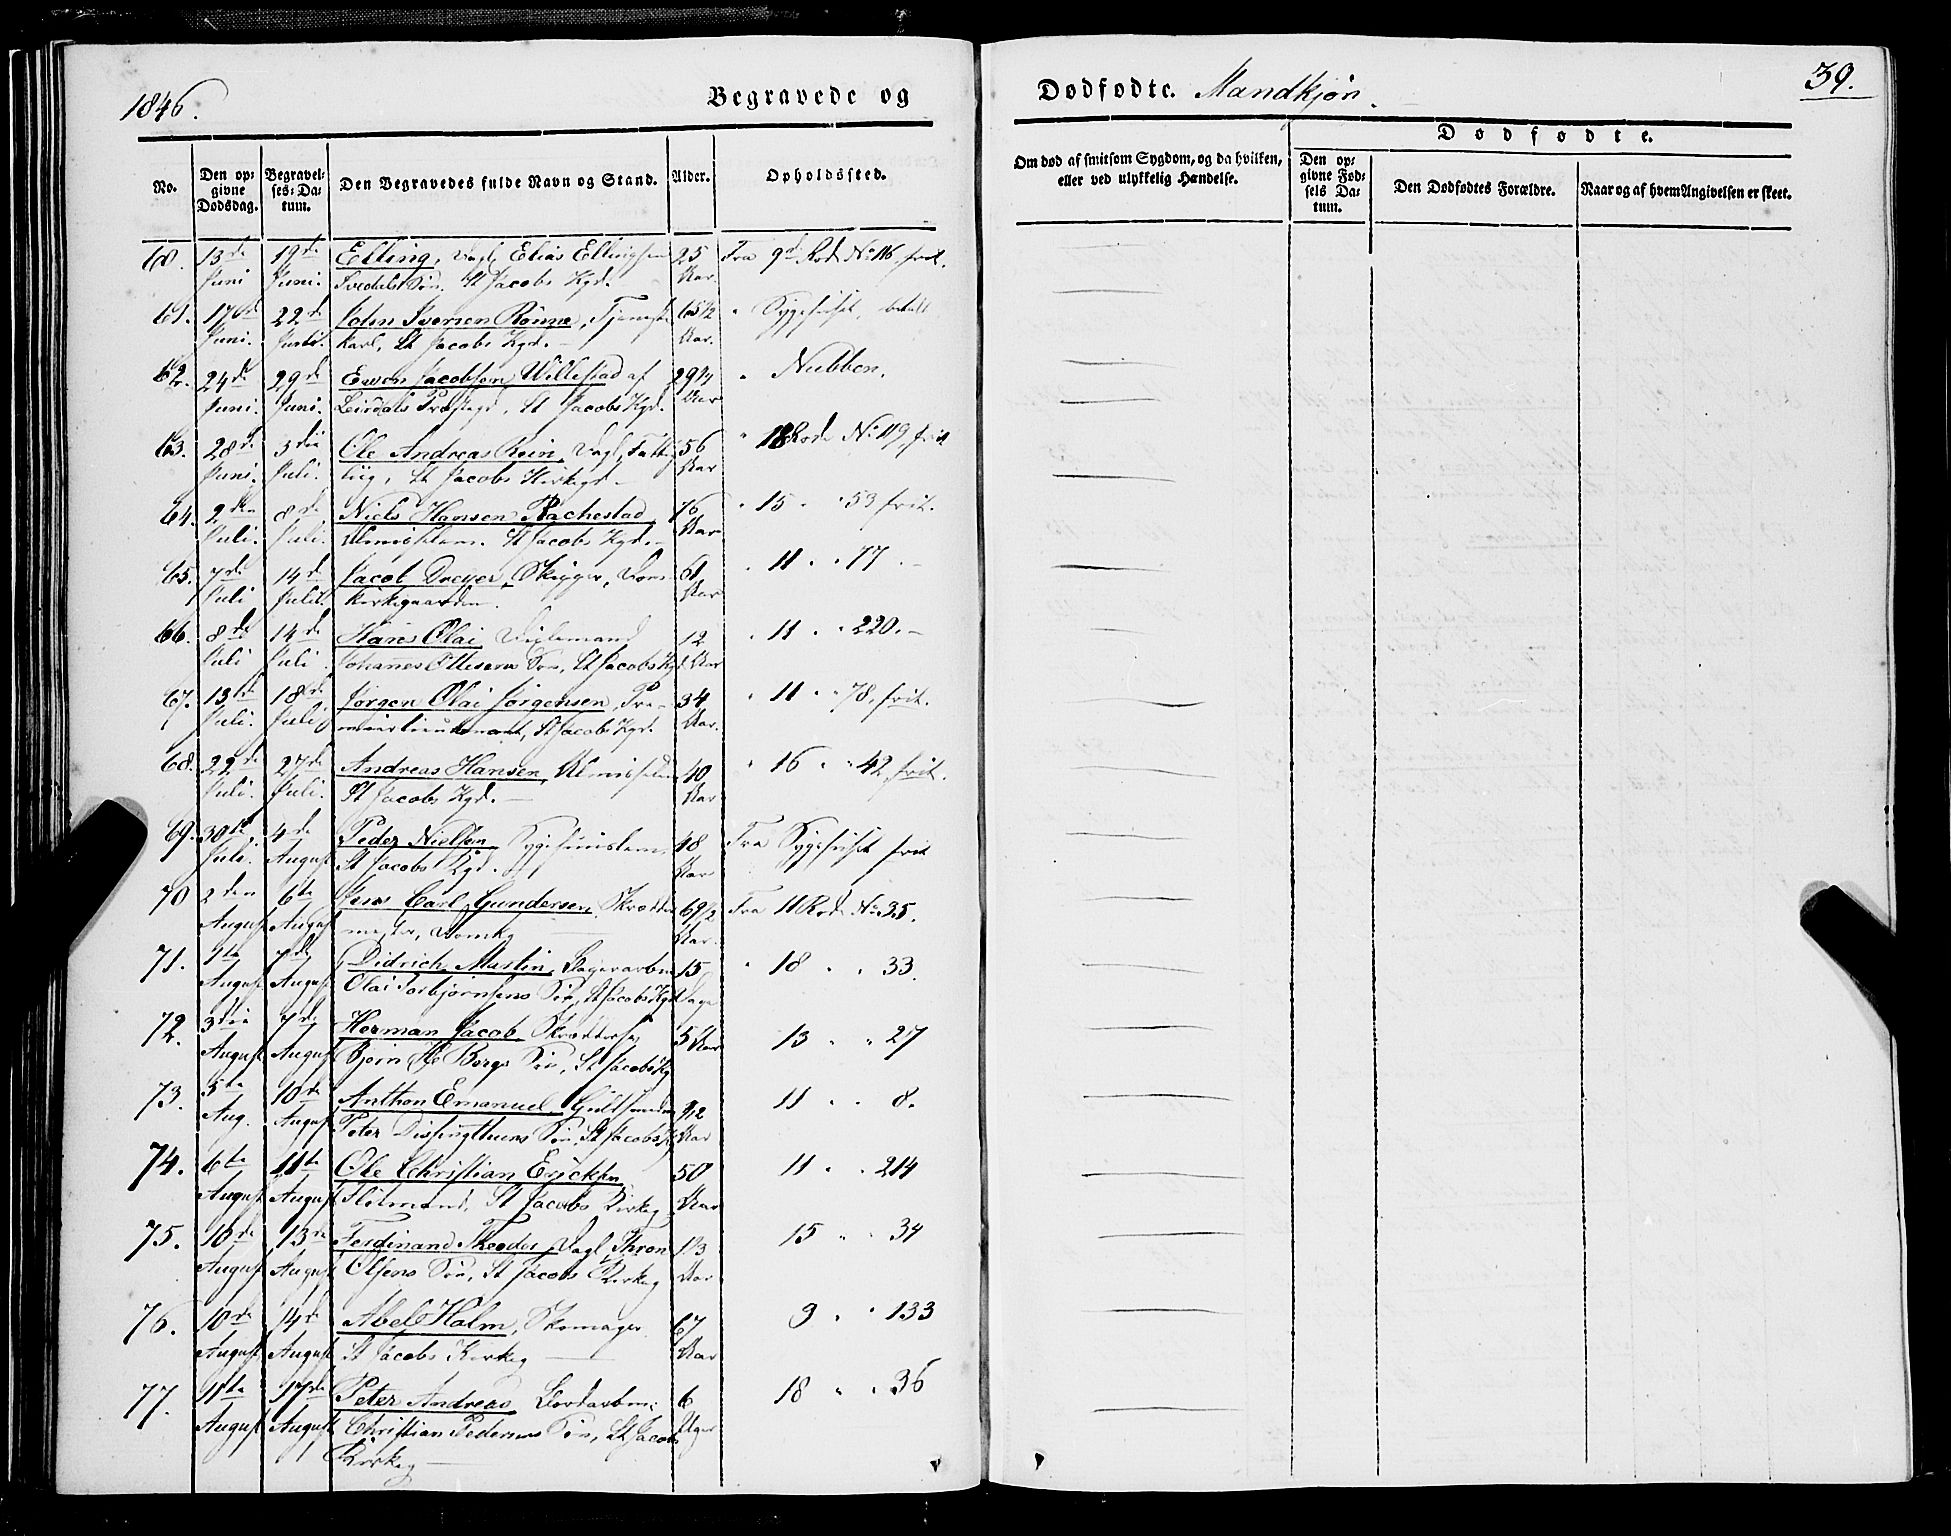 1846.
Begravede og
Dødfødte. Mandkjøn.
39.
No.
Den opgivne Dødsdag.
Begravelses-Datum.
Den Begravedes fulde Navn og Stand.
Alder.
Opholdssted.
Om død af smitsom Sygdom, og da hvilken, eller ved ulykkelig Hændelse.
Dødfødte.
Den opgivne Fødsels Datum.
Den Dødfødtes Forældre.
Naar og af hvem Angivelsen er skeet.
13de 19de Elling, Dagl. Elias Ellingsen 25 Fra 9de Rode No 116, frit.
Juni Juni. Søn. St Jacobs Kgd. Aar
61. 17de 22de John Iversen Rönne, Tjeneste 65 1/2 " Sygehuset, betalt
Juni. Juni. karl, St Jacobs Kgd. Aar.
62. 24de 29de Even Jacobsen Willestad af 29 1/4 " Nubben.
Juni. Juni. Leirdals Præstegd, St Jacobs Kgd. Aar
63. 28de 3die Ole Andreas Rein, Dagl, Fattig 56 " 18 Rode No 119, frit
Juni. Juli. St Jacobs Kirkegd. Aar
64. 2den 8de Niels Hansen Rachestad, 76 " 15 " " 53 frit.
Juli. Juli. Almislem. St Jacobs Kgd. Aar
65. 7de 14de Jacob Dreyer, Skipper, Dom 61 " 11 " " 77. -
Juli Juli. kirkegaarden. Aar
66. 8de 14de Hans Olai 12 " 11 " " 220. -
Juli Juli. Johannes Ottesens Søn, St Jacobs Kgd Aar
67. 13de 18de Jørgen Olai Jørgensen, Pre- 34 " 11 " " 78, frit.
Juli. Juli mierlieutenant, St Jacobs Kgd. Aar.
68. 22de 27de Andreas Hansen, Almislem 40 " 16 " " 42, frit.
Juli. Juli. St Jacobs Kgd. Aar
69. 30te 4de Peder Nielsen, Sygehuuslem, 48 Fra Sygehuset frit
Juli. August St Jacobs Kgd. Aar
70 2den 6te Jens Carl Gundersen, Skrædder 69 1/2 Fra 11 Rode No 35.
August August mester, Domkg Aar.
71. 1te 7de Didrich Martin, 15 " 18 " " 33.
August August Olai Torbjørnsens Søn, St Jacobs Kgd Dage
72. 3die 7de Herman Jacob, 5 Aar 13 " " 27
August August Bjørn Bergs Søn, St Jacobs Kg
73. 5te 10de Anthon Emanuel, Guldsmed 11 " " 8.
Aug. August Peter Søn, St Jacobs Kg Aar
74. 6te 11te Ole Christian Ericksen, 50 11 " " 214
August August St Jacobs Kirkeg Aar
75. 10de 13de Ferdinand Theodor, Dagl, Thron 15 " " 34
August August Olsens Søn, St Jacobs Kirkeg Aar
76. 10de 14de Abel Holm, Skomager 67 9 " " 133
August August St Jacobs Kirkeg Aar
77. 11te 17de Peter Andreas 6 18 " " 36
August August Christian Pedersens Søn, St Jacobs Uger
Kirkeg